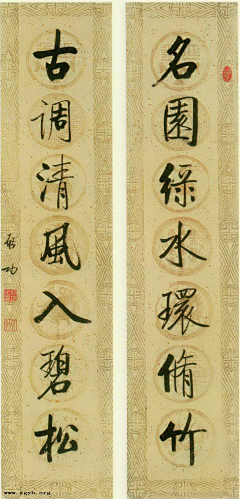 名園綠水環脩竹
古调清風入碧松
啓功
www.zgyb.org